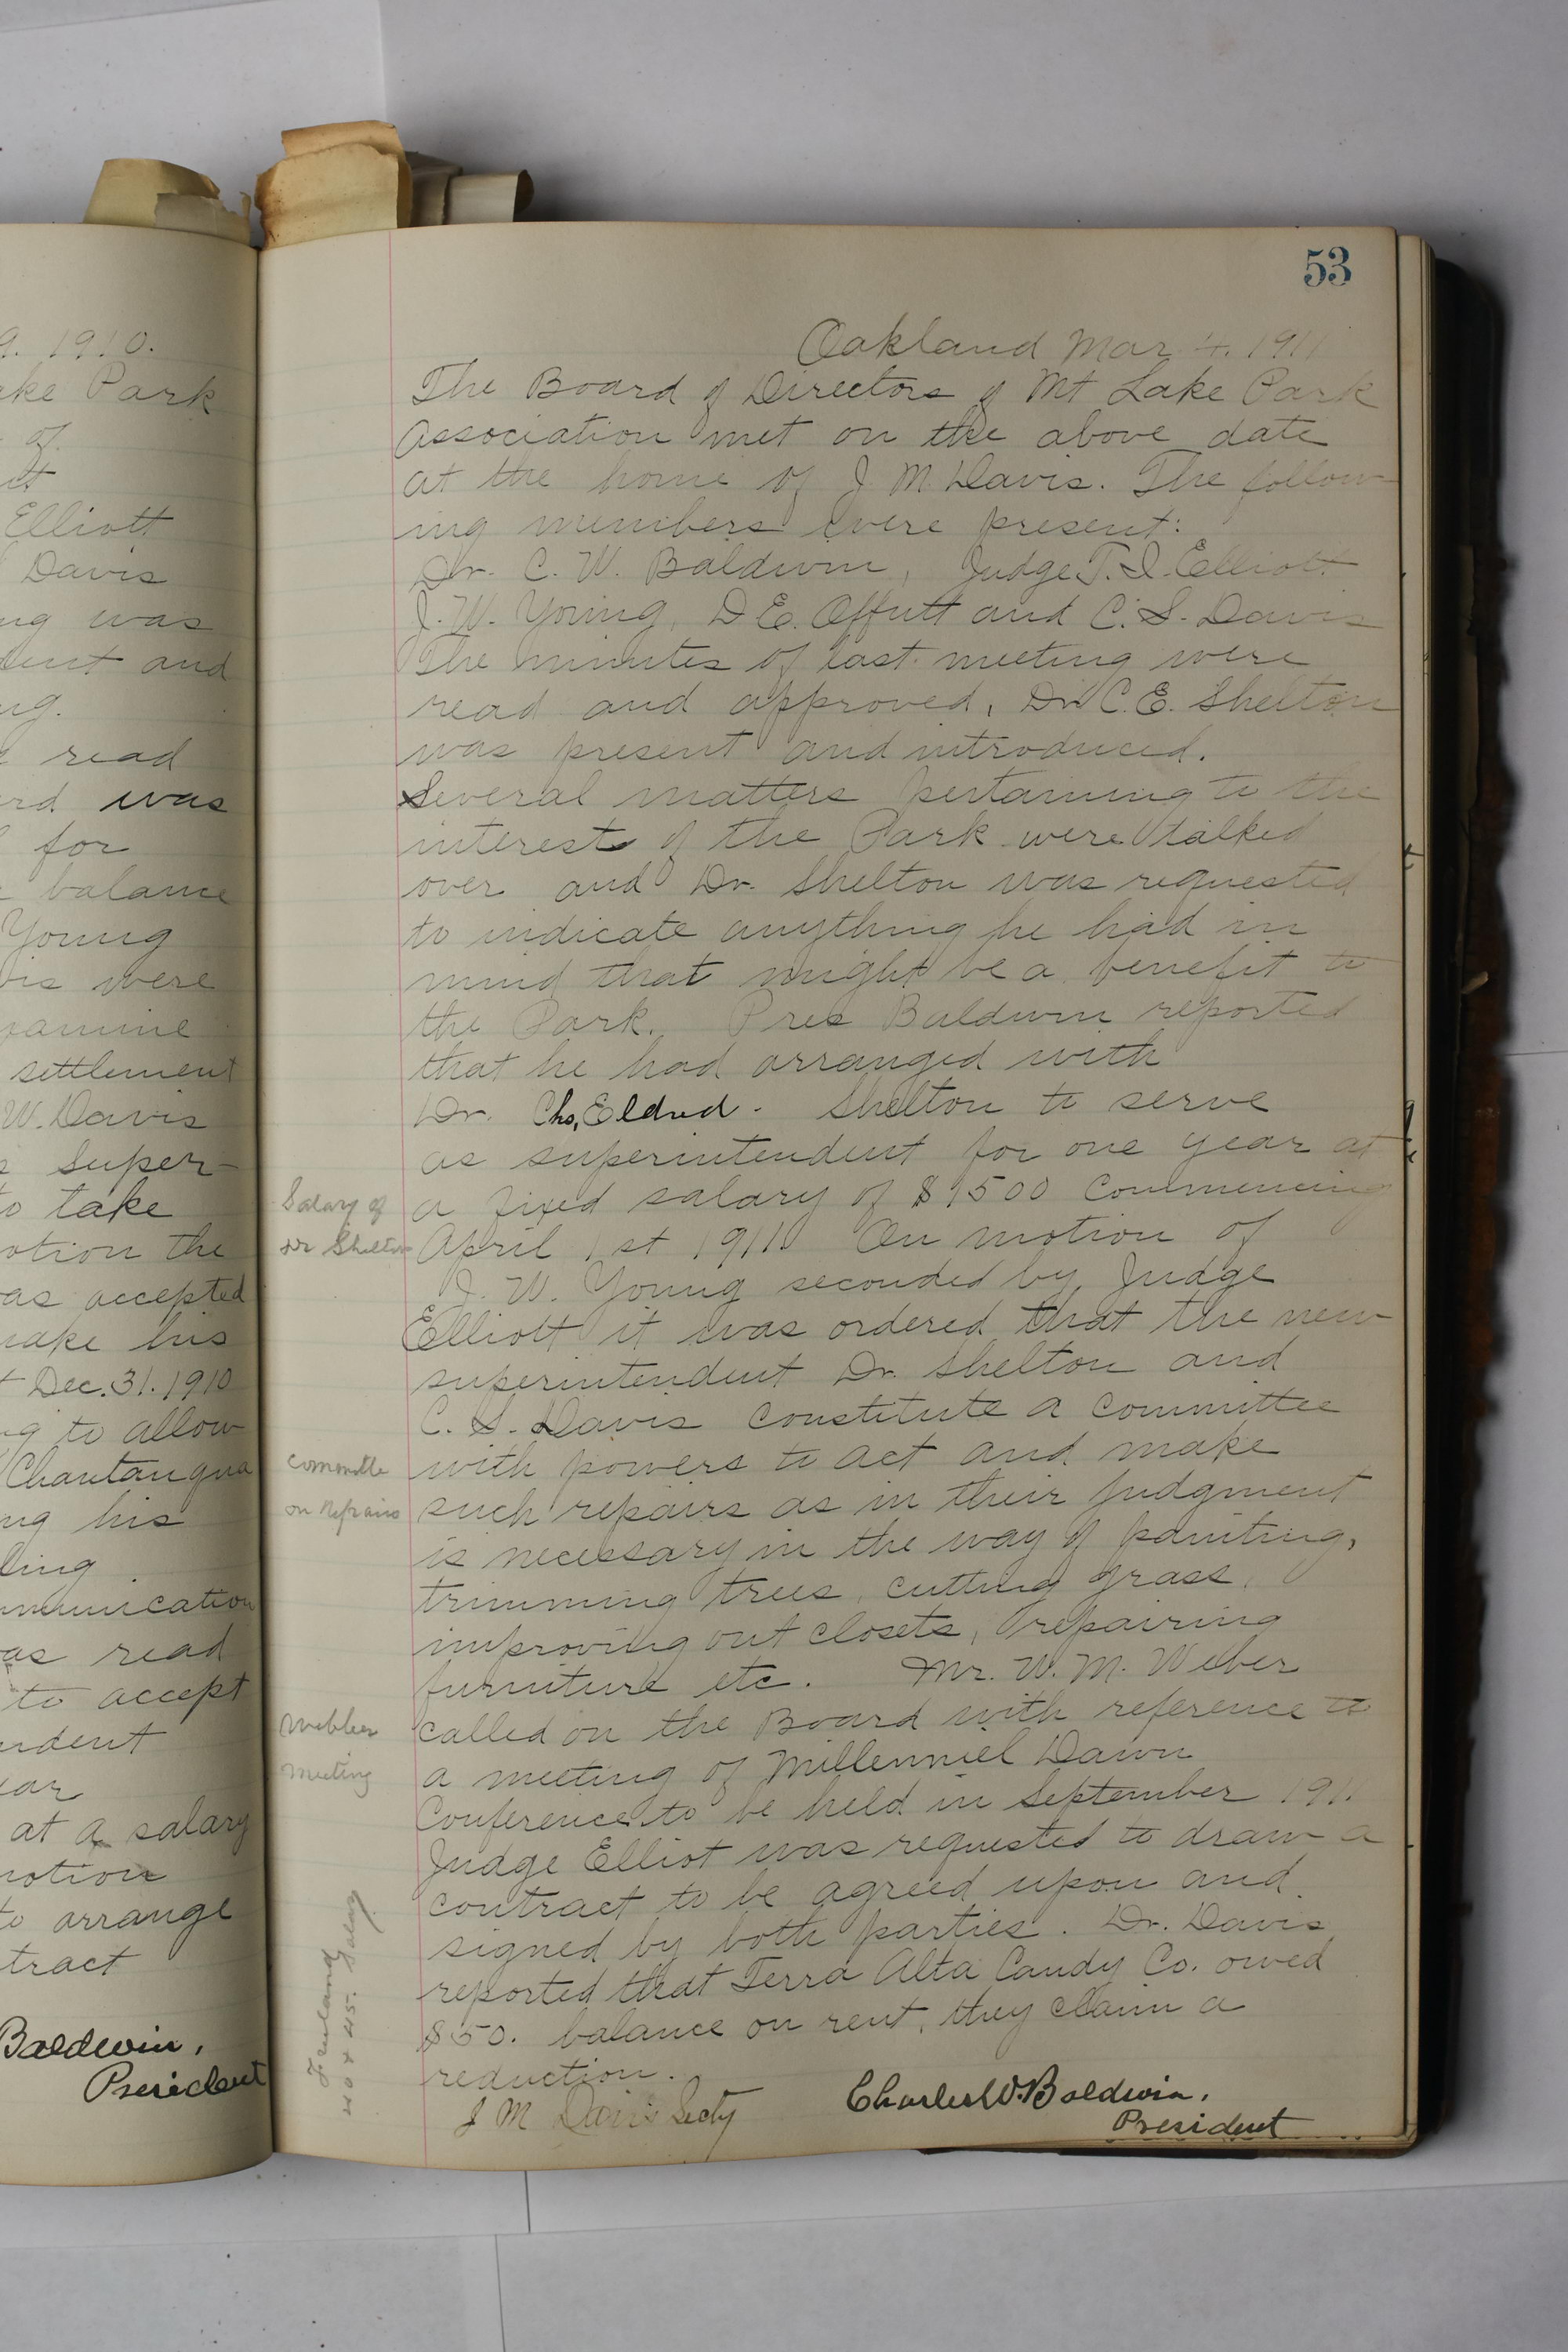 9. 1910.
ake Park
of
it
Elliott
Davis
ng was
dent and
ng.
read
rd was
for
balance
Young
vis were
xamine
settlement
W. Davis
s Super-
to take
otion the
as accepted
make his
t Dec. 31. 1910
ng to allow
Chautauqua
ng his
ling
mmunication
as read
to accept
ndent
ear
at a salary
motion
to arrange
tract
Baldwin,
President
53
Oakland Mar 4. 1911
The Board of Directors of Mt Lake Park
Association met on the above date
at the home of J M. Davis. The follow-
ing members were present:
Dr. C. W. Baldwin, Judge T. I. Elliott
J. W. Young, D E. Offutt and C. S. Davis
The minutes of last meeting were
read and approved, Dr C. E. Shelton
was present and introduced.
Several matters pertaining to the
interests of the Park were talked
over and Dr. Shelton was requested
to indicate anything he had in
mind that might be a benefit to
the Park. Pres Baldwin reported
that he had arranged with
Dr. Chs, Eldred. Shelton to serve
as superintendent for one year at
Salary of
Dr Shelton
a fixed salary of $1500 Commencing
April 1st 1911. On motion of
J. W. Young seconded by Judge
Elliott it was ordered that the new
superintendent Dr. Shelton and
C. S. Davis constitute a committee
committe
on repairs
with powers to act and make
such repairs as in their judgment
is necessary in the way of painting,
trimming trees, cutting grass,
improving out closets, repairing
furniture etc. Mr. W. M. Weber
Webber
meeting
called on the Board with reference to
a meeting of Millenniel Dawn
Conference to be held in September 1911.
Judge Elliot was requested to draw a
contract to be agreed upon and
signed by both parties. Dr. Davis
reported that Terra Alta Candy Co. owed
$50. balance on rent, they claim a
reduction.
J M Davis Secty
Charles W. Baldwin,
President
Freeland Salary
40 & 45.